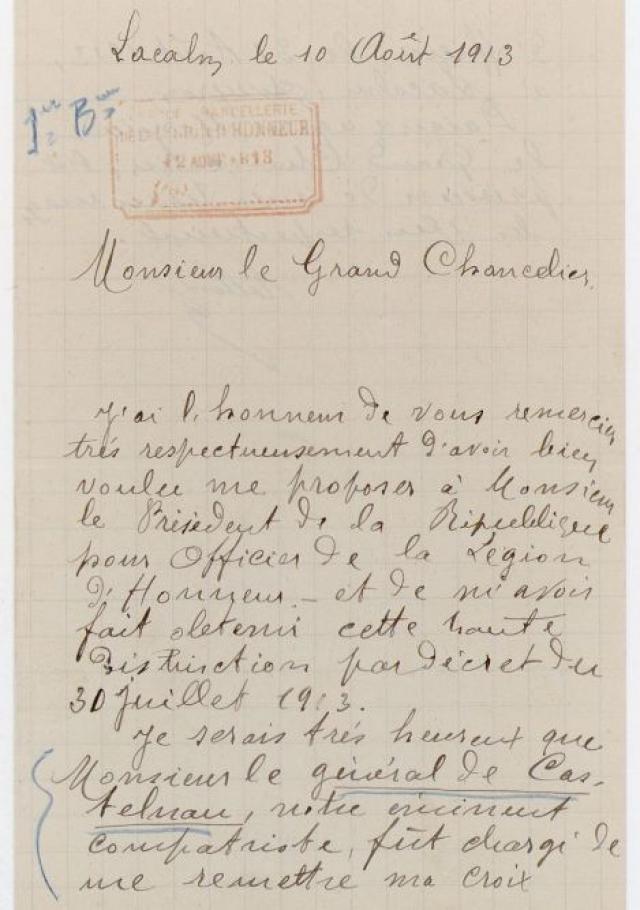 Lacalm, le 10 Août 1913
1er Bau
GRANDE CHANCELLERIE
DE LA LÉGION D'HONNEUR
12 AOUT 1913
Monsieur le Grand Chancelier.
J'ai l'honneur de vous remercier
très respectueusement d'avoir bien
voulu me proposer à Monsieur
le Président de la République
pour Officier de la Légion
d'Honneur - et de m'avoir
fait obtenir cette haute
distinction par décret du
30 juillet 1913.
Je serais très heureux que
Monsieur le général de Cas-
telnau, notre éminent
compatriote, fût chargé de
me remettre ma croix